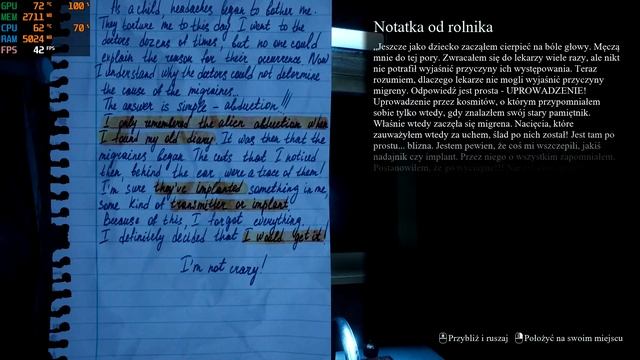 GPU 72 °C 100 %
MEM 2711 MB
CPU 62 °C 70 %
RAM 5024 MB
FPS 42 FPS
As a child, headaches began to bother me.
They torture me to this day. I went to the
doctors dozens of times, but no one could
explain the reason for their occurrence. Now
I understand why the doctors could not determine
the cause of the migraines...
The answer is simple - abduction!!!
I only remembered the alien abduction when
I found my old diary. It was then that the
migraines began. The cuts that I noticed
then, behind the ear, were a trace of them!
I'm sure they've implanted something in me,
some kind of transmitter or implant.
Because of this, I forgot everything.
I definitely decided that I would get it!
I'm not crazy!
Notatka od rolnika
„Jeszcze jako dziecko zacząłem cierpieć na bóle głowy. Męczą
mnie do tej pory. Zwracałem się do lekarzy wiele razy, ale nikt
nie potrafił wyjaśnić przyczyny ich występowania. Teraz
rozumiem, dlaczego lekarze nie mogli wyjaśnić przyczyny
migreny. Odpowiedź jest prosta - UPROWADZENIE!
Uprowadzenie przez kosmitów, o którym przypomniałem
sobie tylko wtedy, gdy znalazłem swój stary pamiętnik.
Właśnie wtedy zaczęła się migrena. Nacięcia, które
zauważyłem wtedy za uchem, ślad po nich został! Jest tam po
prostu... blizna. Jestem pewien, że coś mi wszczepili, jakiś
nadajnik czy implant. Przez niego o wszystkim zapomniałem.
Postanowiłem, że go
Przybliż i ruszaj Położyć na swoim miejscu